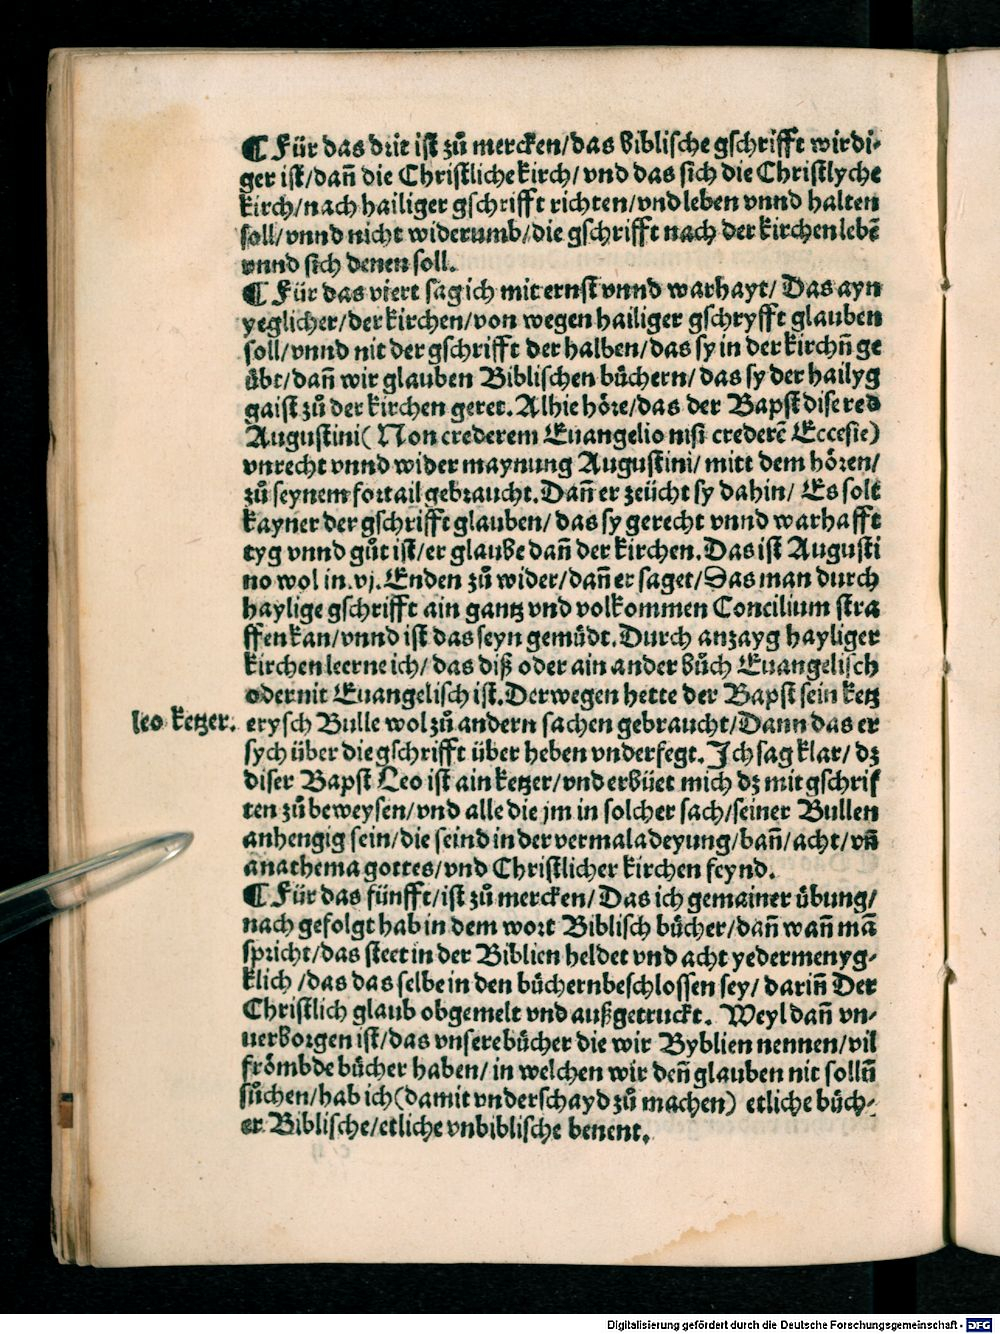 ¶ Für das drit ist zů mercken/das biblische gschrifft wirdi⸗
ger ist/dañ die Christliche kirch/ vnd das sich die Christlyche
kirch/nach hailiger gschrifft richten/vnd leben vnnd halten
soll/vnnd nicht widerumb/die gschrifft nach der kirchen lebē
vnnd sich denen soll.
¶ Für das viert sag ich mit ernst vnnd warhayt/ Das ayn
yeglicher/der kirchen/von wegen hailiger gschryfft glauben
soll/vnnd nit der gschrifft der halben/das sy in der kirchñ ge
übt/dañ wir glauben Biblischen büchern/das sy der hailyg
gaist zů der kirchen geret. Alhie höre/das der Bapst dise red
Augustini( Non crederem Euangelio nisi crederē Eccesie)
vnrecht vnnd wider maynung Augustini/ mitt dem hören/
zů seynem fortail gebraucht. Dañ er zeücht sy dahin/ Es solt
kayner der gschrifft glauben/ das sy gerecht vnnd warhafft
tyg vnnd gůt ist/er glaube dañ der kirchen. Das ist Augusti
no wol in. vj. Enden zů wider/dañ er saget/Das man durch
haylige gschrifft ain gantz vnd volkommen Concilium stra
ffen kan/vnnd ist das seyn gemüdt. Durch anzayg hayliger
kirchen leerne ich/ das diß oder ain ander bůch Euangelisch
oder nit Euangelisch ist. Derwegen hette der Bapst sein ketz
leo ketzer. erysch Bulle wol zů andern sachen gebraucht/Dann das er
sych über die gschrifft über heben vnderfegt. Ich sag klar/ dz
diser Bapst Leo ist ain ketzer/vnd erbüet mich dz mit gschrif
ten zů beweysen/vnd alle die jm in solcher sach/seiner Bullen
anhengig sein/die seind in der vermaladeyung/bañ/acht/vñ
anathema gottes/vnd Christlicher kirchen feynd.
¶ Für das fünfft/ist zů mercken/ Das ich gemainer übung/
nach gefolgt hab in dem wort Biblisch bücher/dañ wañ mā
spricht/das steet in der Biblien heldet vnd acht yedermenyg⸗
klich /das das selbe in den büchern beschlossen sey/ dariñ Der
Christlich glaub obgemelt vnd außgetruckt. Weyl dañ vn⸗
uerborgen ist/das vnsere bücher die wir Byblien nennen/vil
frömbde bücher haben/ in welchen wir deñ glauben nit sollñ
sůchen/hab ich(damit vnderschayd zů machen) etliche büch⸗
er Biblische/etliche vnbiblische benent.
Digitalisierung gefördert durch die Deutsche Forschungsgemeinschaft - DFG